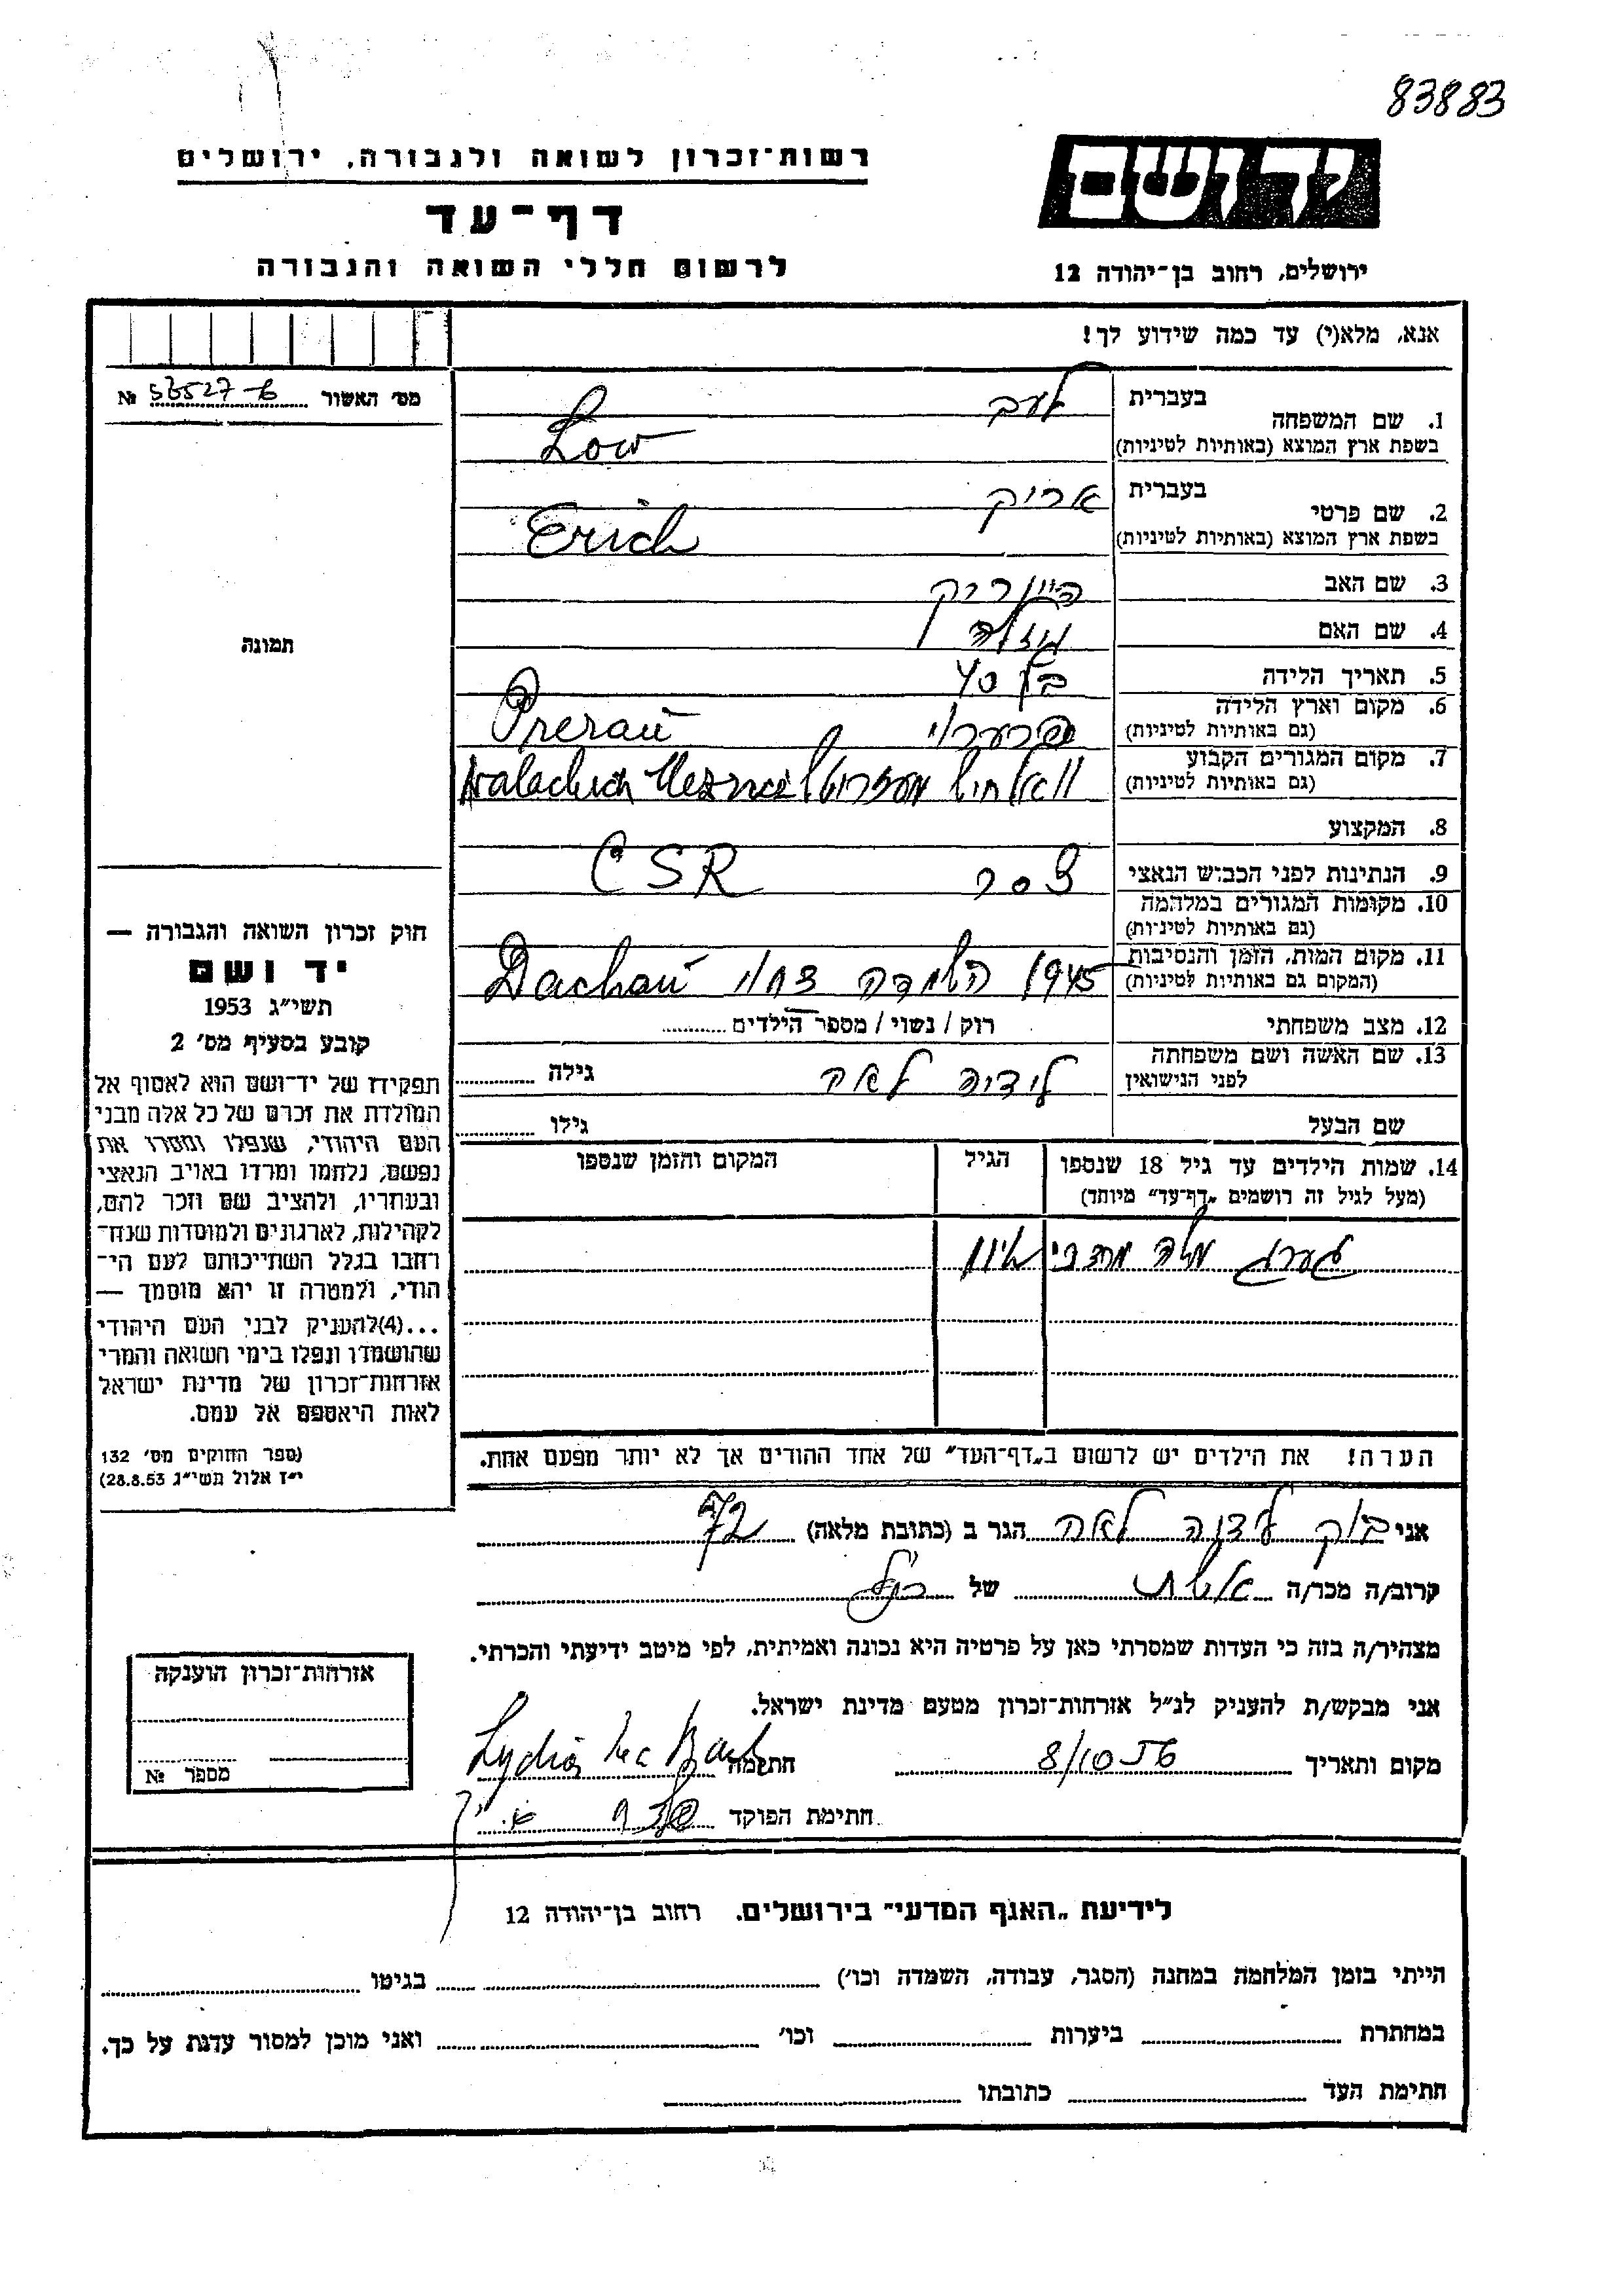 83883
יד ושם
רשות־זכרון לשואה ולגבורה, ירושלים
דף־עד
לרשום חללי השואה והגבורה
ירושלים, רחוב בן־יהודה 12
אנא, מלא(י) עד כמה שידוע לך!
מס׳ האשור №
1. שם המשפחה
בעברית לעב
בשפת ארץ המוצא (באותיות לטיניות) Löw
2. שם פרטי
בעברית אריק
בשפת ארץ המוצא (באותיות לטיניות) Erich
3. שם האב היינריק
4. שם האם גיזלה
5. תאריך הלידה בן 40
6. מקום וארץ הלידה
(גם באותיות לטיניות) Prerau
7. מקום המגורים הקבוע
(גם באותיות לטיניות)
8. המקצוע
9. הנתינות לפני הכבוש הנאצי CSR
10. מקומות המגורים במלחמה
(גם באותיות לטיניות)
11. מקום המות, הזמן והנסיבות
(המקום גם באותיות לטיניות) 1945 דחאו Dachau
12. מצב משפחתי רוק / נשוי / מספר הילדים
13. שם האשה ושם משפחתה
לפני הנישואין לידיה לאה גילה
שם הבעל גילו
14. שמות הילדים עד גיל 18 שנספו
(מעל לגיל זה רושמים „דף־עד״ מיוחד)
הגיל
המקום והזמן שנספו
הערה! את הילדים יש לרשום ב„דף־העד״ של אחד ההורים אך לא יותר מפעם אחת.
תמונה
חוק זכרון השואה והגבורה —
יד ושם
תשי״ג 1953
קובע בסעיף מס׳ 2
תפקידו של יד־ושם הוא לאסוף אל
המולדת את זכרם של כל אלה מבני
העם היהודי, שנפלו ומסרו את
נפשם, נלחמו ומרדו באויב הנאצי
ובעוזריו, ולהציב שם וזכר להם,
לקהילות, לארגונים ולמוסדות שנח־
רבו בגלל השתייכותם לעם הי־
הודי, ולמטרה זו יהא מוסמך —
...(4)להעניק לבני העם היהודי
שהושמדו ונפלו בימי השואה והמרי
אזרחות־זכרון של מדינת ישראל
לאות היאספם אל עמם.
(ספר החוקים מס׳ 132
י״ז אלול תשי״ג 28.8.53)
אני לאה הגר ב (כתובת מלאה)
קרוב/ה מכר/ה אשת של הנ״ל
מצהיר/ה בזה כי העדות שמסרתי כאן על פרטיה היא נכונה ואמיתית, לפי מיטב ידיעתי והכרתי.
אני מבקש/ת להעניק לנ״ל אזרחות־זכרון מטעם מדינת ישראל.
מקום ותאריך 8/10 56 חתימה Lydia
חתימת הפוקד
אזרחות־זכרון הוענקה
מספר №
לידיעת „האגף המדעי״ בירושלים. רחוב בן־יהודה 12
הייתי בזמן המלחמה במחנה (הסגר, עבודה, השמדה וכו׳) בגיטו
במחתרת ביערות וכו׳ ואני מוכן למסור עדות על כך.
חתימת העד כתובתו